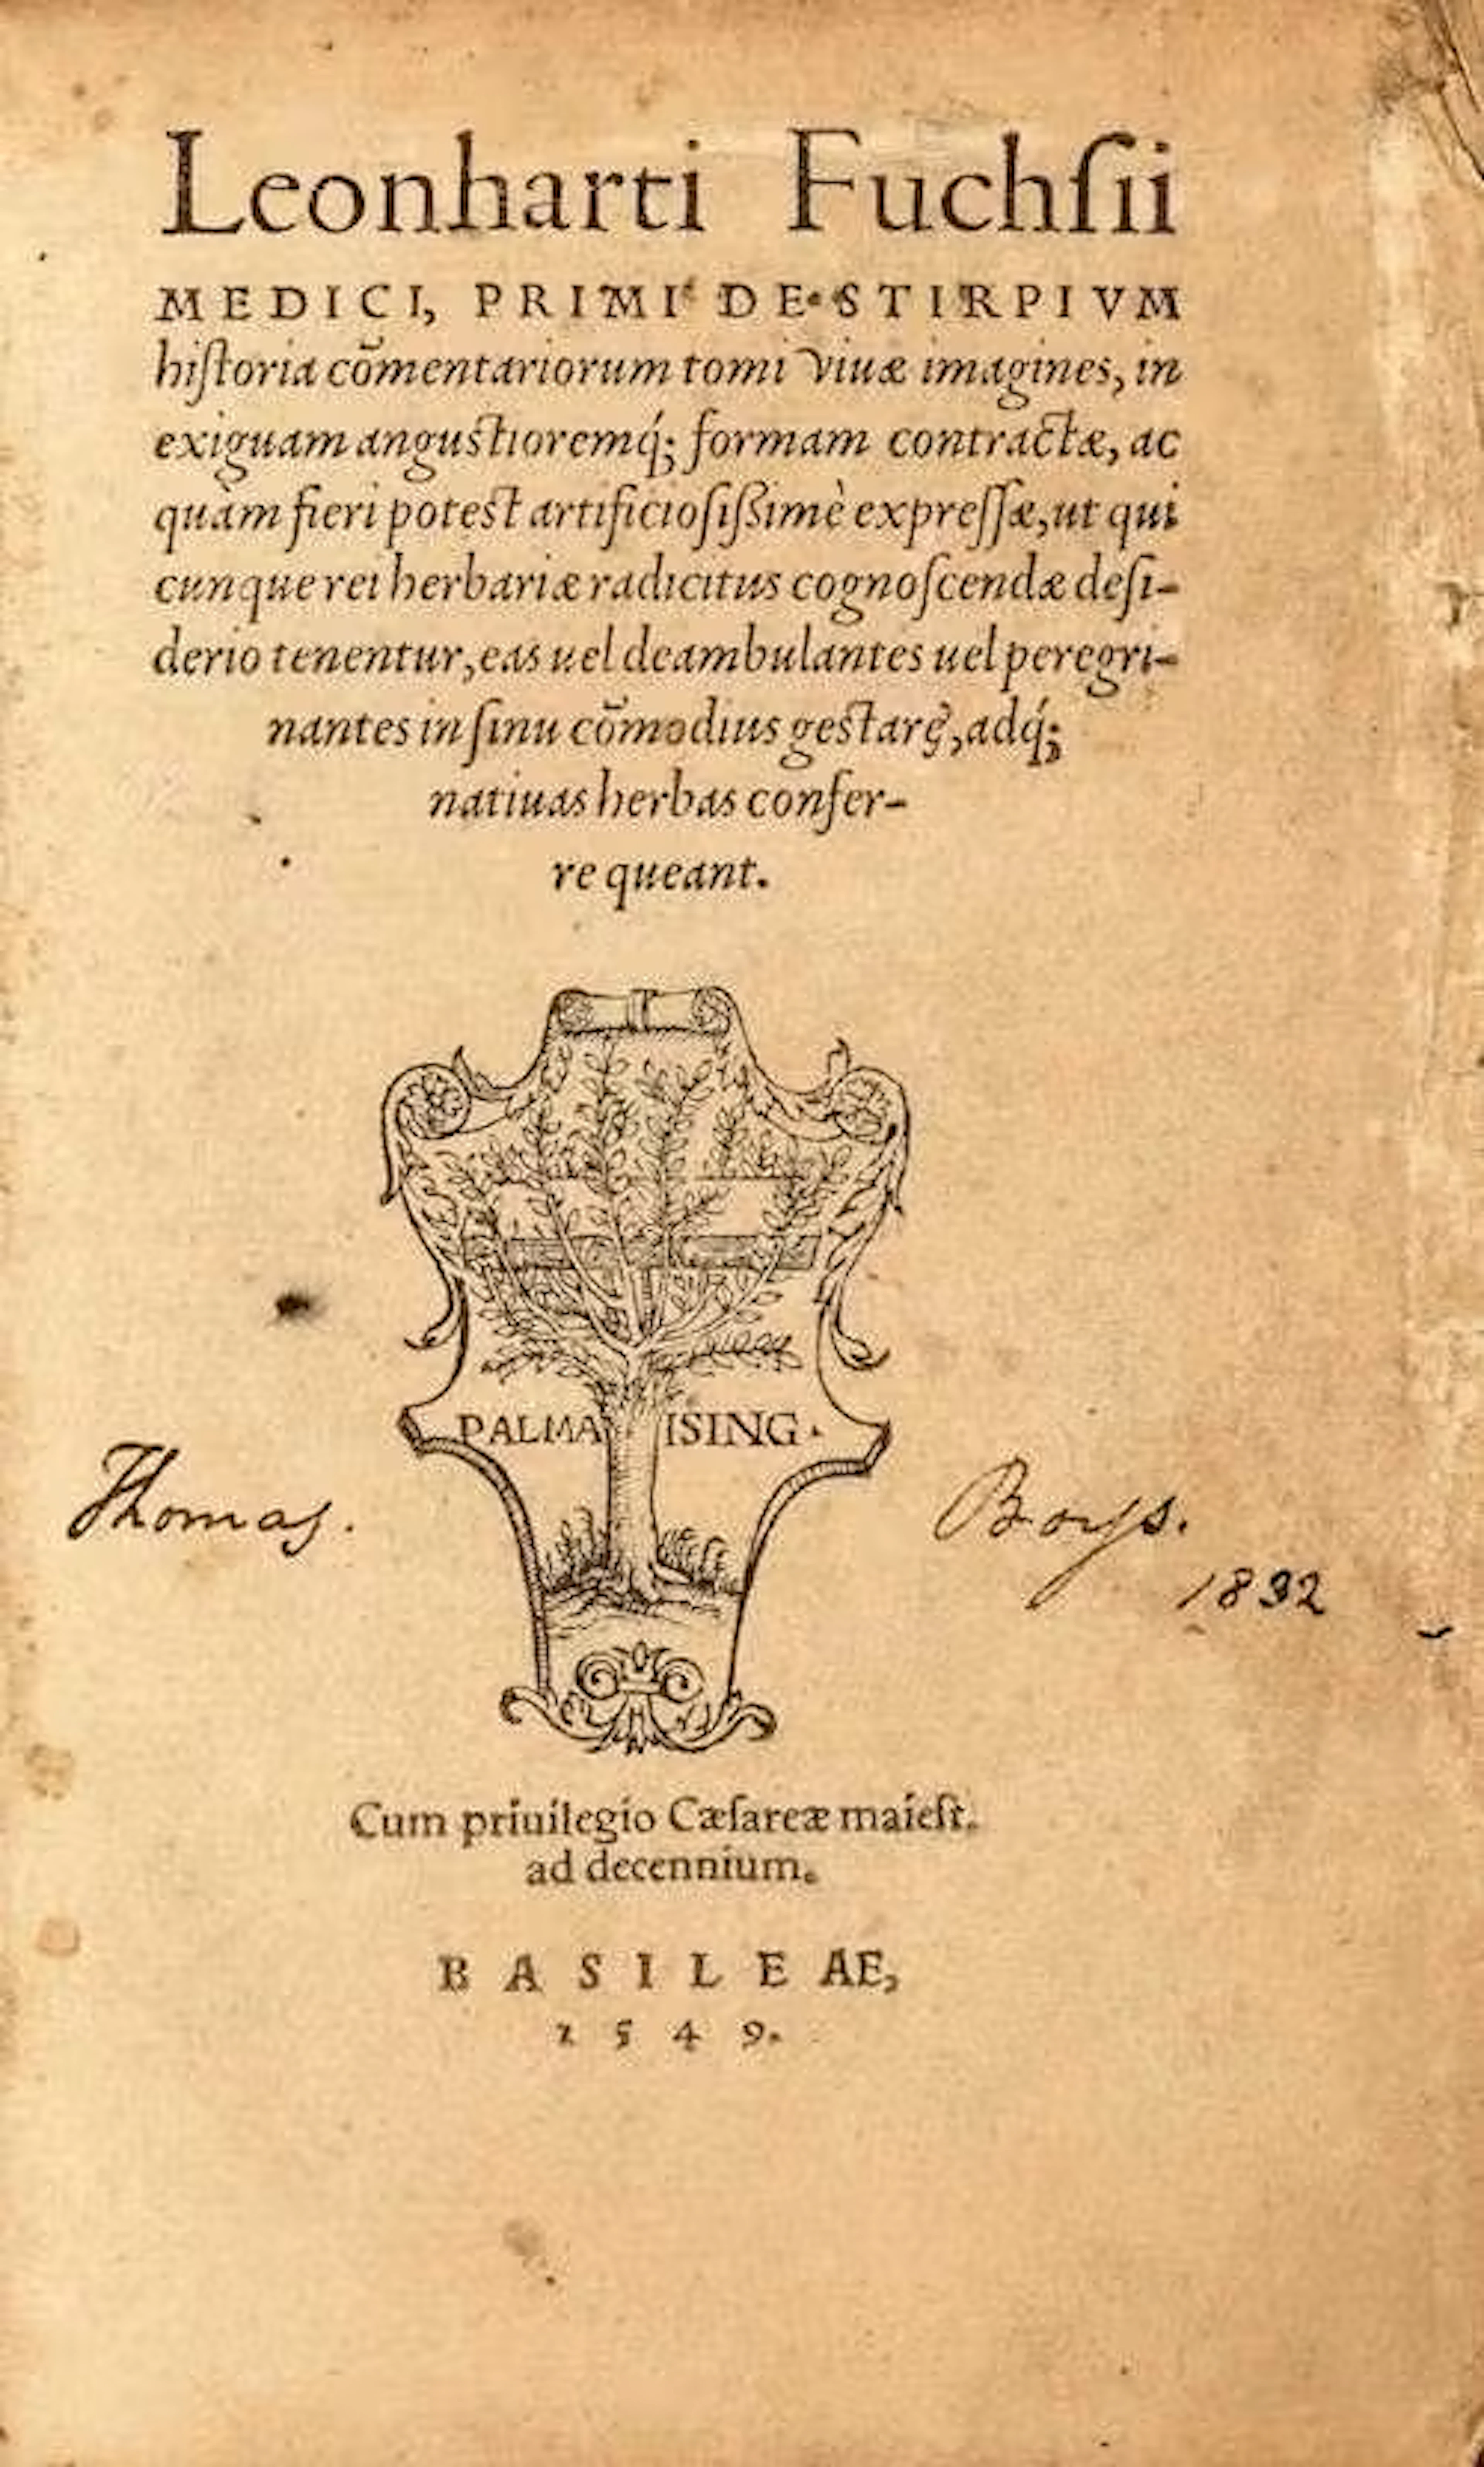 Leonharti Fuchſii
MEDICI, PRIMI DE STIRPIVM
hiſtoria cõmentariorum tomi viuæ imagines, in
exiguam anguſtioremq́; formam contractæ, ac
quàm fieri poteſt artificioſiſsimè expreſſæ, ut qui
cunque rei herbariæ radicitus cognoſcendæ deſi-
derio tenentur, eas uel deambulantes uel peregri-
nantes in ſinu cõmodius geſtare, adq́;
natiuas herbas confer-
re queant.
PALMA ISING.
Thomas. Boys.
1832
Cum priuilegio Cæſareæ maieſt.
ad decennium.
BASILEAE,
1549.